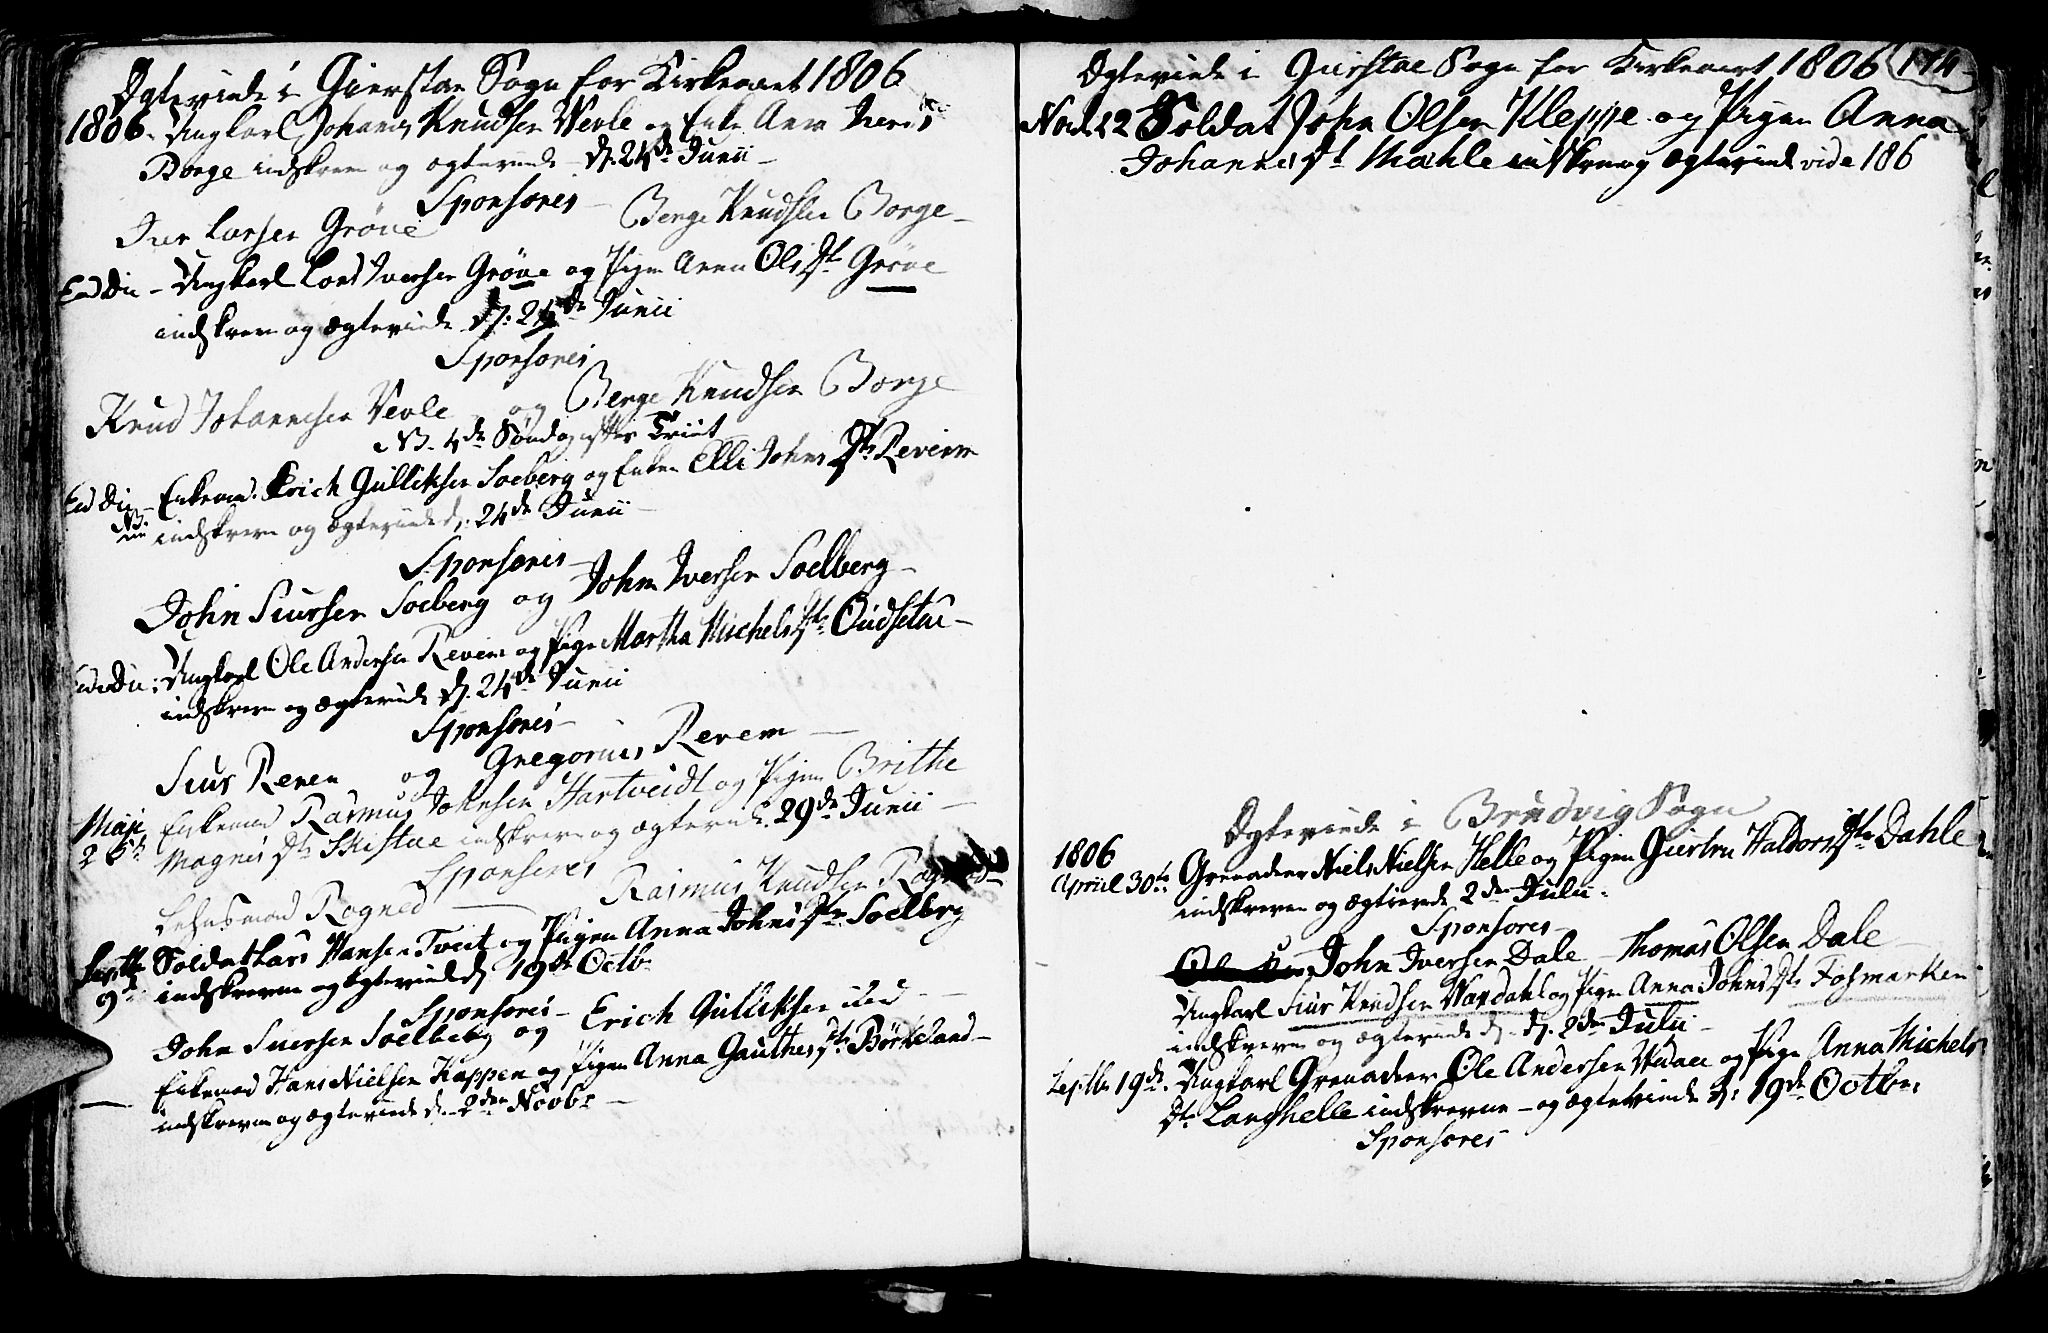 Ægteviede i Gierstae Sogn for Kirkeaaret 1806
1806. Ungkarl Johannes Knudsen Vevle og Enke Anna Ivers
Borge indskrevn og ægteviede d. 24de Junii
Sponsores
Iver Larsen Grøve Berge Knudsen Borge
Eod Die - Ungkarl Lars Iversen Grøve og Pigen Anna Olsdtr Grøve
indskrevn og ægteviede d: 24de Junii
Sponsores
Knud Johannesen Vevle og Berge Knudsen Borge
NB. 4de Søndag efter Triit
Eod Die - Enkemd. Erich Gulliksen Soeberg og Enken Elli Johnsdtr Reveim
NB. indskrevn og ægteviede d. 24de Junii
Sponsores
John Siursen Soeberg og John Iversen Soelberg
Eod Die: Ungkarl Ole Andersen Reveim og Pige Martha Michelsdtr Oudsetae
indskrevn og ægteviede d. 24de Junii
Sponsores
Siur Revem og Gregorius Revem
Maji Enkemd Rasmus Johnsen Hartveidt og Pigen Brithe
26de Magnisdtr Skistae indskrevn og ægteviede 29de Junii
Sponsores
Lehnsmand Rogned Rasmus Knudsen Rogned
Septbr Soldat Lars Hansen Tveit og Pigen Anna Johnsdtr Soelberg
9de indskrevne og ægteviede d 19de Octb
Sponsores
John Siursen Soelberg og Erich Gulliksen ibid
Enkemd Hans Nielsen Kappen og Pigen Anna Gauthesdtr Børkesand
indskrevn og ægteviede d. 2den Novbr
Ægteviede i Gierstae Sogn for Kirkeaaret 1806 174
Nov. 22 Soldat John Olsen Kleppe og Pigen Anna
Johannesdt Mæhle indskrevn og ægteviede vide 186
Ægteviede i Brudvig Sogn
1806
Apriil 30te Grenadeer Niels Nielsen Helle og Pigen Giertru Haldorsdtr Dahle
indskreven og ægtviede 2den Julii
Sponsores
John Iversen Dale - Thomas Olsen Dale
Ungkarl Siur Knudsen Vardahl og Pigen Anna Johnsdtr Fosmarken
indskreven og ægteviede d. 2den Julii
Septbr 19de. Ungkarl Grenadeer Ole Andersen og Pige Anna Michels
dtr Langhelle indskrevne - og ægteviede d: 19de Octbr
Sponsores